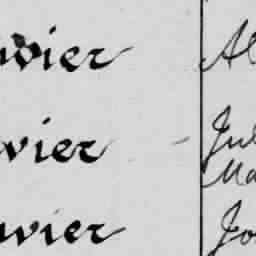 vier Al
vier Jul
Ma
vier Jo